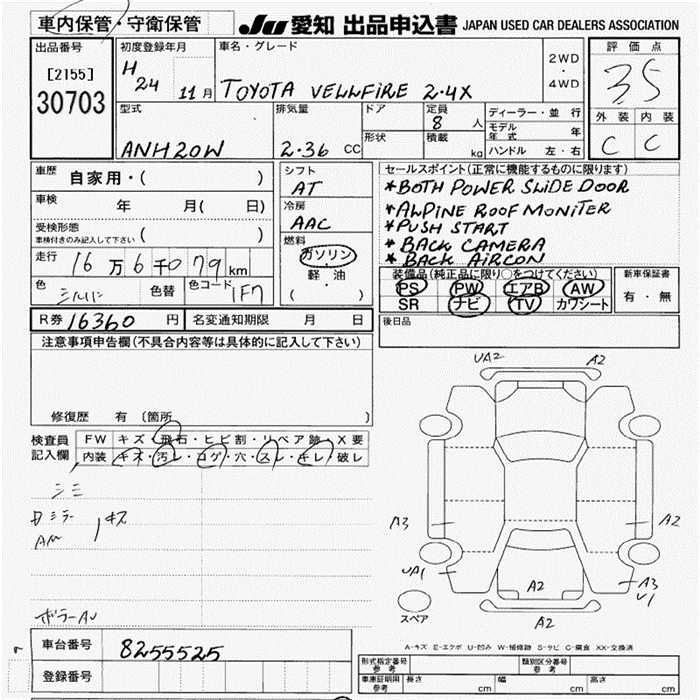 車内保管・守衛保管
JU 愛知 出品申込書 JAPAN USED CAR DEALERS ASSOCIATION
出品番号
[2155]
30703
初度登録年月
H 24 11月
車名・グレード
TOYOTA VELLFIRE 2.4X
2WD
・
4WD
評価点
3.5
外装 内装
C C
型式
ANH20W
排気量
2.36 CC
ドア
形状
定員
8 人
積載
kg
ディーラー・並行
モデル年式 年
ハンドル 左・右
車歴 自家用・( )
車検 年 月( 日)
受検形態
車検付きのみ記入して下さい ( )
走行 16万6千079km
色 シルバ 色替 色コード 1F7
シフト
AT
冷房
AAC
燃料
ガソリン
軽・油
( ・ )
セールスポイント(正常に機能するものに限ります)
*BOTH POWER SLIDE DOOR
*ALPINE ROOF MONITER
*PUSH START
*BACK CAMERA
*BACK AIRCON
装備品(純正品に限り○をつけてください)
PS PW エアB AW
SR ナビ TV カワシート
新車保証書
有・無
R券 16360 円 名変通知期限 月 日
後日品
注意事項申告欄(不具合内容等は具体的に記入して下さい)
修復歴 有 〔箇所
検査員記入欄
FW キズ・飛石・ヒビ割・リペア跡・X要
内装 キズ・汚レ・コゲ・穴・スレ・キレ・破レ
シミ
ミラー
キズ
UA2 A2
A3 A2
UA1 A2 A3
U1
スペア
A2
A-キズ E-エクボ U-凹み W-補修跡 S-サビ C-腐食 XX-交換済
車台番号 8255525
登録番号
型式指定番号
参考
類別区分番号
参考
車庫証明用
参考
長さ cm 幅 cm 高さ cm